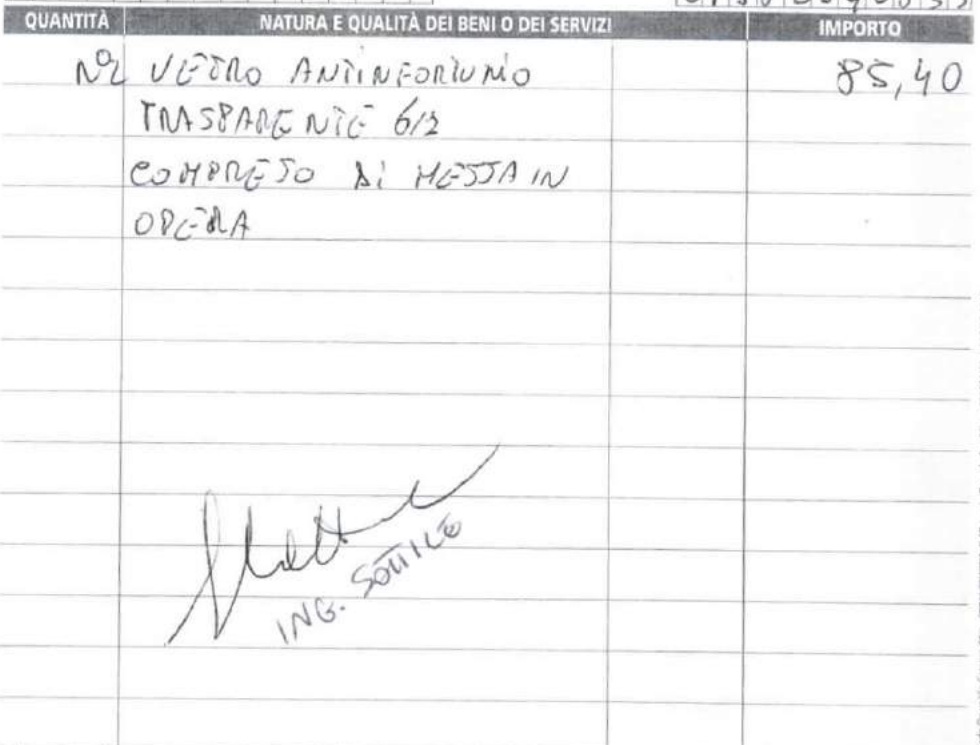 QUANTITÀ NATURA E QUALITÀ DEI BENI O DEI SERVIZI IMPORTO
N°2 VETRO ANTINFORTUNIO 85,40
TRASPARENTE 6/2
COMPRESO DI MESSA IN
OPERA
ING. SOTTILE